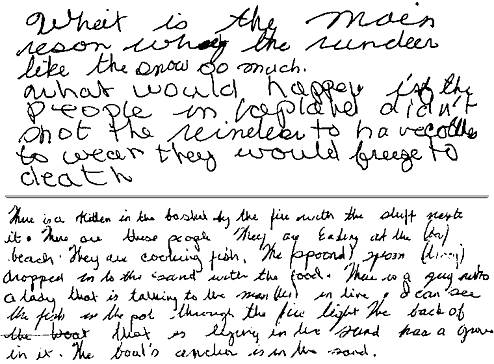 What is the main
reson whey the rundeer
like the snow so much.
what would happen if the
people in lapland didn't
shot the reindeer to have
to wear they would freeze to
death
There is a kitten in the basket by the fire with the stuff next to
it. There are three people They are Eating at the
beach. They are cooking fish. The spoon
dropped in to the sand with the food. There is a guy
a lady that is talking to the man in line. I can see
the fish in the pot through the fire light The back of
the boat that is lying in the sand has a
in it. The boat's anchor is in the sand.